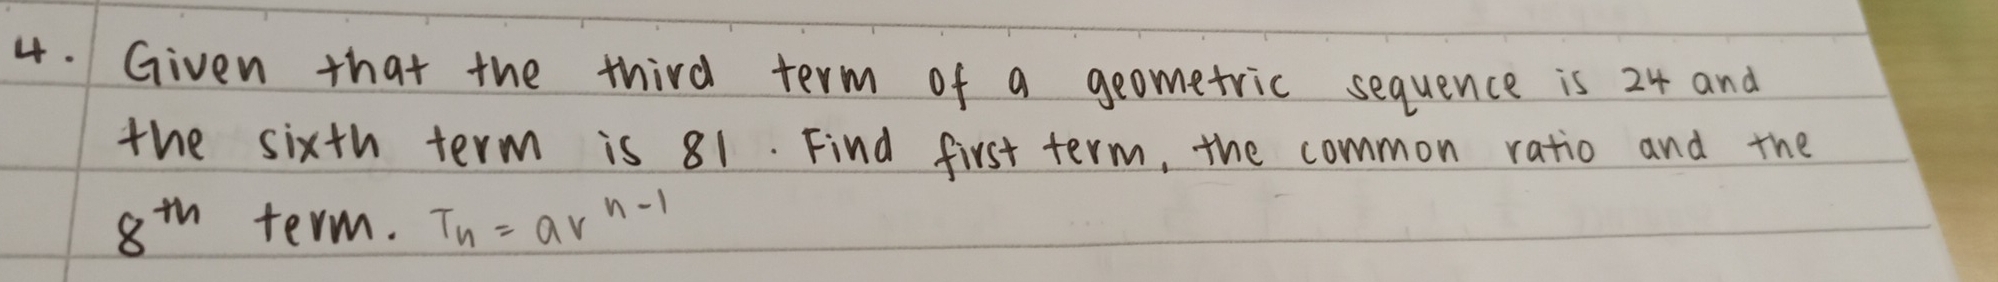 4. Given that the third term of a geometric sequence is 24 and
the sixth term is 81. Find first term, the common ratio and the
8th term. Tn = ar^n-1